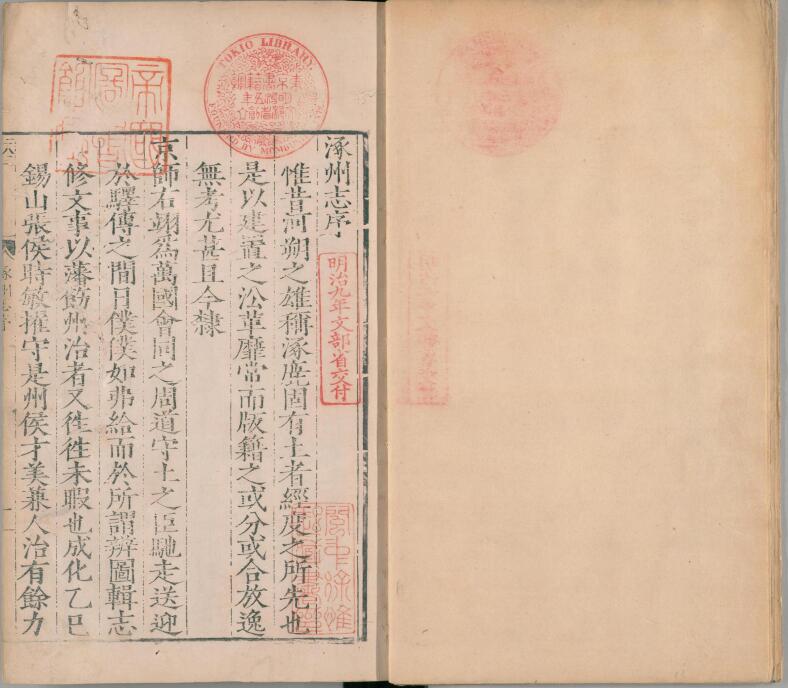 涿州志序
惟昔河朔之雄稱涿鹿固有土者經度之所先也
是以建置之沿革靡常而版籍之或分或合放逸
無考尤甚且今隸
京師右翊為萬國會同之周道守土之臣馳走送迎
於驛傳之間日僕僕如弗給而於所謂辨圖輯志
修文事以藩飭州治者又徃徃未暇也成化乙巳
錫山張侯時敏擢守是州侯才美兼人治有餘力
明治九年文部省交付
TOKIO LIBRARY.